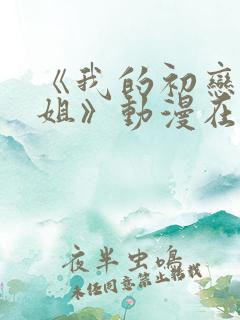 《我的初戀
姐》動漫在
夜半虫鳴
未经同意禁止转载